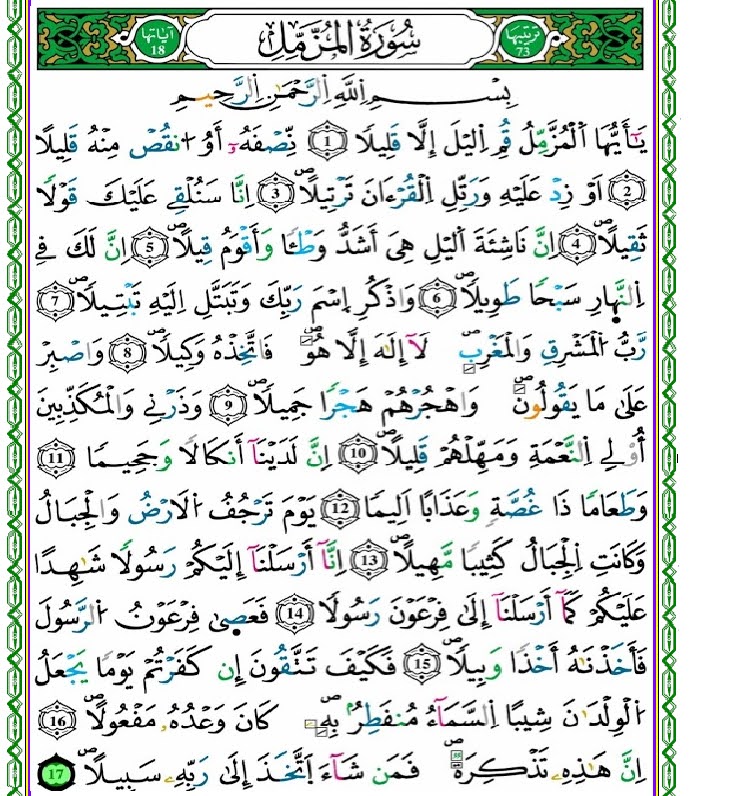 ترتيبها 73 سُورَةُ الْمُزَّمِّل آياتها 18
بِسْمِ اِللَّهِ اِلرَّحْمَٰنِ اِلرَّحِيمِ
يَٰٓأَيُّهَا اَلْمُزَّمِّلُ قُمِ اِليْلَ إِلَّا قَلِيلًا (1) نِّصْفَهُۥٓ أَوُ اُنقُصْ مِنْهُ قَلِيلًا
(2) اَوْ زِدْ عَلَيْهِ وَرَتِّلِ اِلْقُرْءَانَ تَرْتِيلًاۖ (3) اِنَّا سَنُلْقِے عَلَيْكَ قَوْلًا
ثَقِيلًاۖ (4) اِنَّ نَاشِئَةَ اَليْلِ هِىَ أَشَدُّ وَطْـٔٗا وَأَقْوَمُ قِيلًاۖ (5) اِنَّ لَكَ فِے
اِلنَّهارِ سَبْحًا طَوِيلًاۖ (6) وَاذْكُرِ اِسْمَ رَبِّكَ وَتَبَتَّلِ اِلَيْهِ تَبْتِيلًاۖ (7)
رَّبُّ اُلْمَشْرِقِ وَالْمَغْرِبِۖ لَآ إِلَٰهَ إِلَّا هُوَۖ فَاتَّخِذْهُ وَكِيلًاۖ (8) وَاصْبِرْ
عَلَىٰ مَا يَقُولُونَۖ وَاهْجُرْهُمْ هَجْرًا جَمِيلًاۖ (9) وَذَرْنِے وَالْمُكَذِّبِينَ
أُوْلِے اِلنَّعْمَةِ وَمَهِّلْهُمْ قَلِيلًاۖ (10) اِنَّ لَدَيْنَآ أَنكَالًا وَجَحِيمًا (11)
وَطَعَامًا ذَا غُصَّةٍ وَعَذَابًا اَلِيمًا (12) يَوْمَ تَرْجُفُ اُلَارْضُ وَالْجِبَالُ
وَكَانَتِ اِلْجِبَالُ كَثِيبًا مَّهِيلًاۖ (13) اِنَّآ أَرْسَلْنَآ إِلَيْكُمْ رَسُولًا شَٰهِدًا
عَلَيْكُمْ كَمَآ أَرْسَلْنَآ إِلَىٰ فِرْعَوْنَ رَسُولًا (14) فَعَصَىٰ فِرْعَوْنُ اُلرَّسُولَ
فَأَخَذْنَٰهُ أَخْذًا وَبِيلًاۖ (15) فَكَيْفَ تَتَّقُونَ إِن كَفَرْتُمْ يَوْمًا يَجْعَلُ
اُلْوِلْدَٰنَ شِيبًا اِلسَّمَآءُ مُنفَطِرٌۢ بِهِۦۖ كَانَ وَعْدُهُۥ مَفْعُولًاۖ (16)
اِنَّ هَٰذِهِۦ تَذْكِرَةٌۖ فَمَن شَآءَ اَتَّخَذَ إِلَىٰ رَبِّهِۦ سَبِيلًاۖ (17)